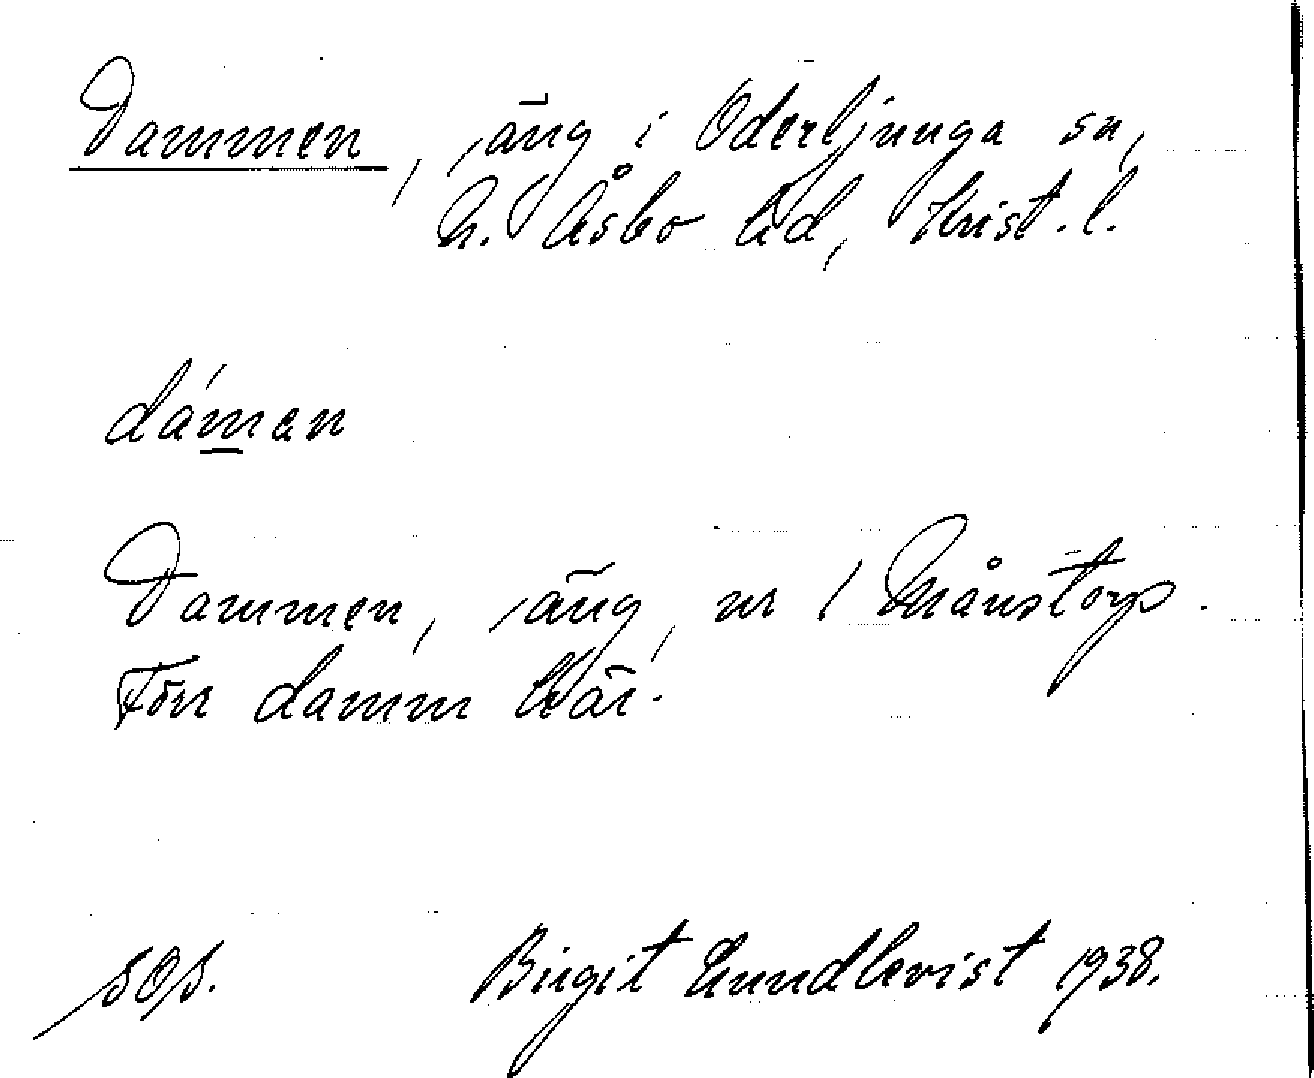 Dammen, äng i Oderljunga sn,
N. Åsbo hd, Krist. l.
dáman
Dammen, äng, nr 1 Månstorp.
Förr damm här.
Birgit Lundkvist 1938.